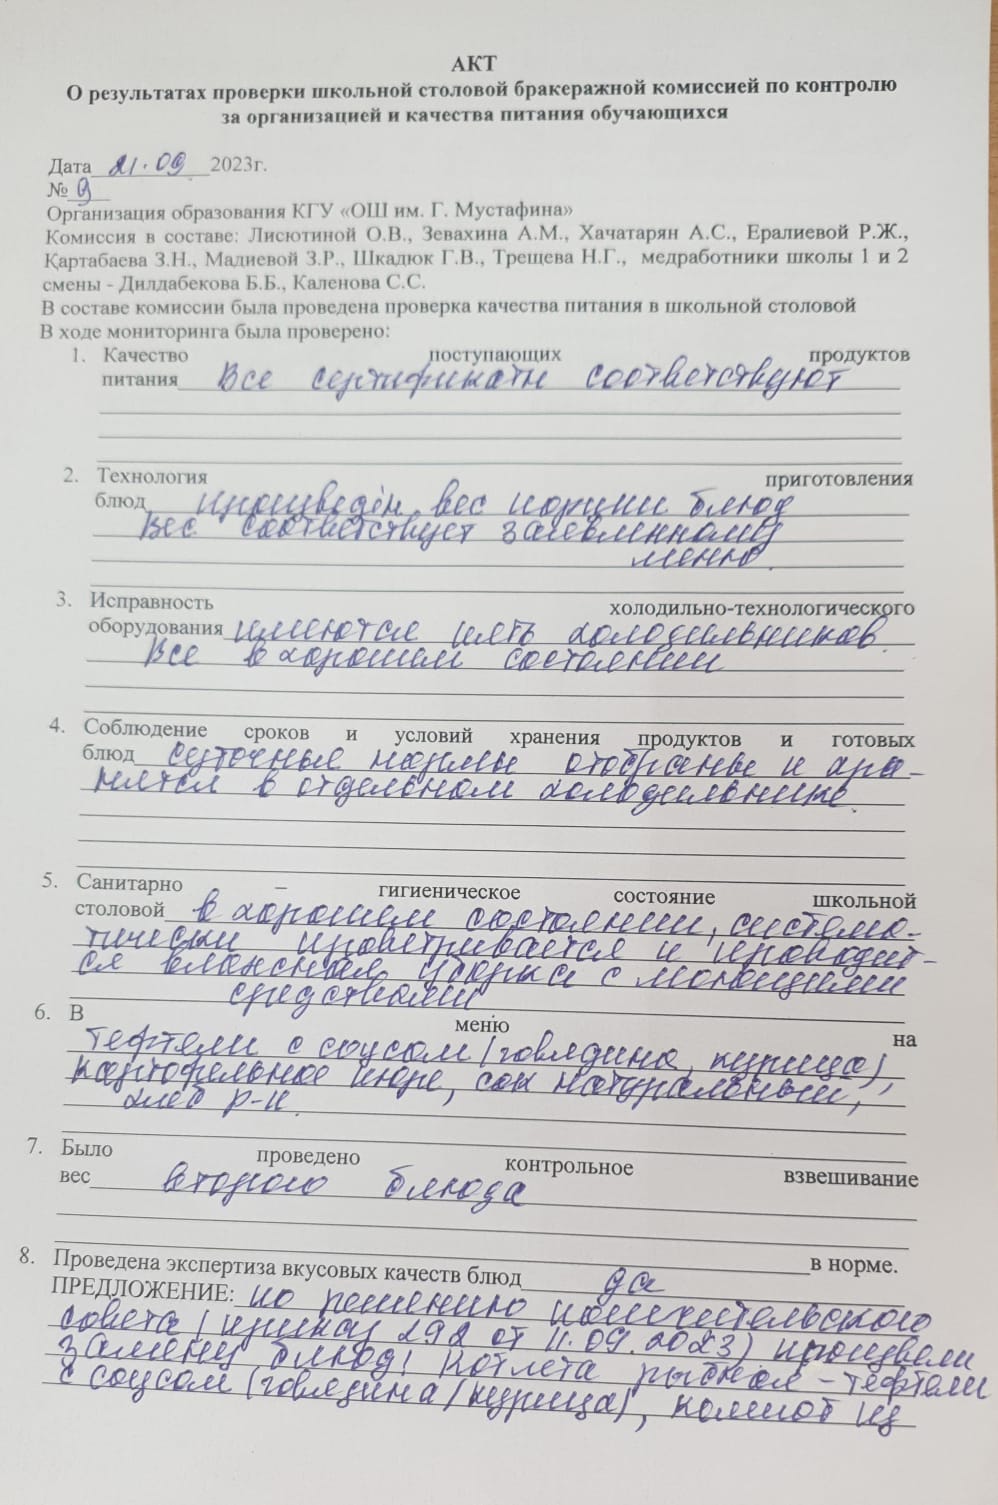 АКТ
О результатах проверки школьной столовой бракеражной комиссией по контролю
за организацией и качества питания обучающихся
Дата 21.09 2023г.
№ 9
Организация образования КГУ «ОШ им. Г. Мустафина»
Комиссия в составе: Лисютиной О.В., Зевахина А.М., Хачатарян А.С., Ералиевой Р.Ж.,
Картабаева З.Н., Мадиевой З.Р., Шкадюк Г.В., Трещева Н.Г., медработники школы 1 и 2
смены - Дилдабекова Б.Б., Каленова С.С.
В составе комиссии была проведена проверка качества питания в школьной столовой
В ходе мониторинга была проверено:
1. Качество поступающих продуктов
питания Все сертификаты соответствуют
2. Технология приготовления
блюд произведён вес порции блюд
Вес соответствует заявленному
меню.
3. Исправность холодильно-технологического
оборудования имеются пять холодильников.
Все в хорошем состоянии
4. Соблюдение сроков и условий хранения продуктов и готовых
блюд суточные нормы отобраны и хра-
нятся в отдельном холодильнике.
5. Санитарно – гигиеническое состояние школьной
столовой в хорошем состоянии, система-
тически проветривается и проводит-
ся влажная уборка с моющими
средствами
6. В меню на
Тефтели с соусом (говядина, курица),
картофельное пюре, сок натуральный,
хлеб р-п.
7. Было проведено контрольное взвешивание
вес второго блюда
в норме.
8. Проведена экспертиза вкусовых качеств блюд да
ПРЕДЛОЖЕНИЕ: по решению попечительского
совета (приказ 292 от 11.09.2023) произвели
замену блюд: котлета рыбная - тефтели
с соусом (говядина/курица), компот из